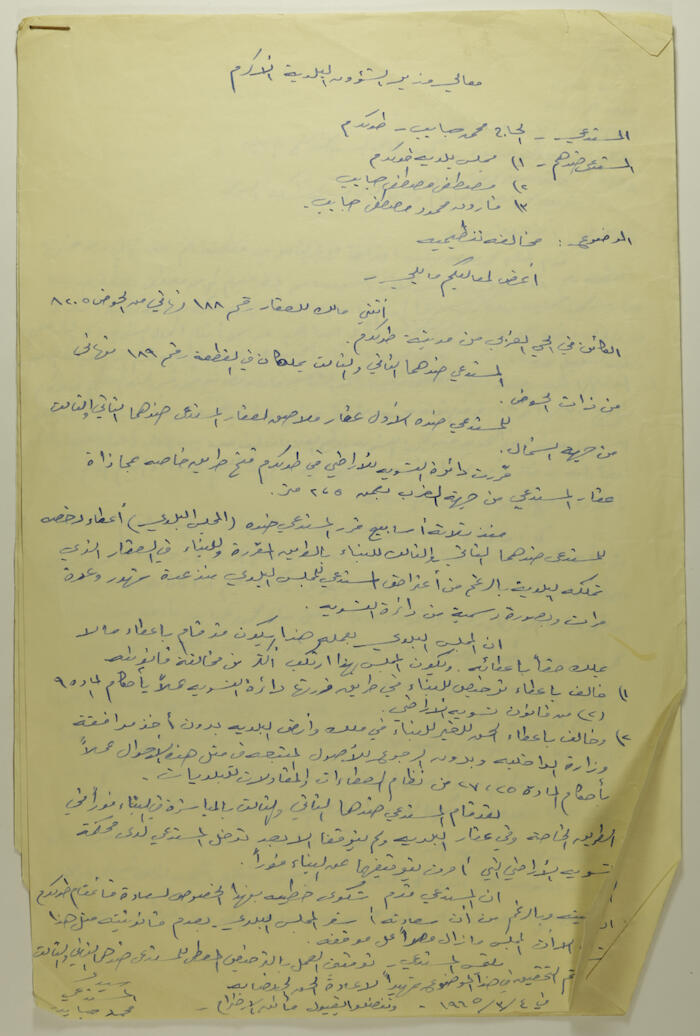 معالي وزير الشؤون البلدية الأكرم
المستدعي - الحاج محمد حبايب - طولكرم
المستدعى ضدهم - ١) مجلس بلدية طولكرم
٢) مصطفى مصطفى حبايب
٣) فاروق محمود مصطفى حبايب.
الموضوع : مخالفة تنظيمية
أعرض لمعاليكم ما يلي -
أنني مالك للعقار رقم ١٨٨ نهائي من الحوض ٨٢٠٥
الكائن في الحي الغربي من مدينة طولكرم.
المستدعي ضدهما الثاني والثالث يملكان في القطعة رقم ١٨٩ نهائي
من ذات الحوض.
للمستدعي ضده الأول عقار ملاصق لعقار المستدعى ضدهما الثاني والثالث
من جهة الشمال.
قررت دائرة التسوية للأراضي في طولكرم فتح طريق خاصة بمحاذاة
عقار المستدعي من جهة الغرب بعرض ٢٧٥ متر.
منذ ثلاثة أسابيع قرر المستدعي ضده (المجلس البلدي) أعطاء رخصه
للمستدعى ضدهما الثاني والثالث للبناء بالطريق المقررة وللبناء في العقار الذي
تملكه البلدية بالرغم من أعتراض المستدعي للمجلس البلدي منذ عدة شهور وعدة
مرات وبصورة رسمية من دائرة التسويه.
ان المجلس البلدي بعمله هذا يكون قد قام باعطاء ما لا
يملك حقا باعطائه. ويكون المجلس بهذا ارتكب أكثر من مخالفة قانونيه
١) خالف باعطاء ترخيص للبناء في طريق قررتها دائرة التسويه عملاً بأحكام المادة ٩
(٢) من قانون تسوية الأراضي.
٢) وخالف باعطاء الحق للغير للبناء في ملك وأرض البلديه بدون أخذ موافقة
وزارة الداخليه وبدون الرجوع للأصول المتبعه في مثل هذه الاحوال عملاً
بأحكام المادة ٢٥، ٢٧ من نظام العطاءات والمقاولات للبلديات.
لقد قام المستدعي ضدهما الثاني والثالث بالمباشرة في البناء فورا في
الطريق الخاصة وفي عقار البلديه ولم يتوقفا الا بعد تدخل المستدعي لدى محكمة
تسوية الأراضي التي أمرت بتوقيفهما عن البناء فوراً.
ان المستدعي قدم شكوى خطيه بهذا الخصوص لسعادة قائمقام طولكرم
وبالرغم من أن سعادته المجلس البلدي بعدم قانونية مثل هذا
الا أن المجلس ما زال مصراً على موقفه.
يلتمس المستدعي - توقيف العمل بالترخيص المعطى للمستدعى ضدهما الثاني والثالث
ثم التحقيق في هذا الموضوع تمهيداً لاعادة الحق لنصابه
وتفضلوا بقبول فائق الاحترام -
في ٤/٣/١٩٦٥
المستدعي
محمد حبايب